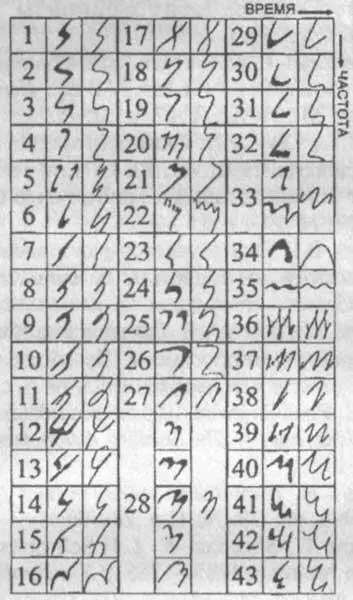 ВРЕМЯ
ЧАСТОТА
1 17 29
2 18 30
3 19 31
4 20 32
5 21 33
6 22
7 23 34
8 24 35
9 25 36
10 26 37
11 27 38
12 28 39
13 40
14 41
15 42
16 43